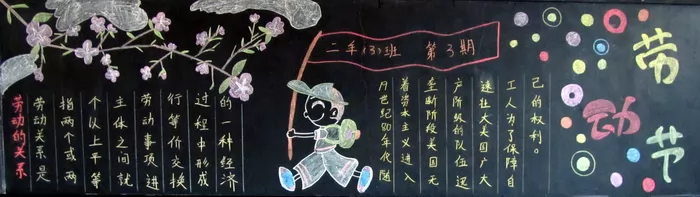 二年(3)班 第3期
劳动节
劳动的关系
劳动关系是
指两个或两
个以上平等
主体之间就
劳动事项进
行等价交换
过程中形成
的一种经济
世纪80年代随
着本主义进入
垄断阶段美国无
产阶级的队伍迅
速壮大美国广大
工人为了保障自
己的权利。